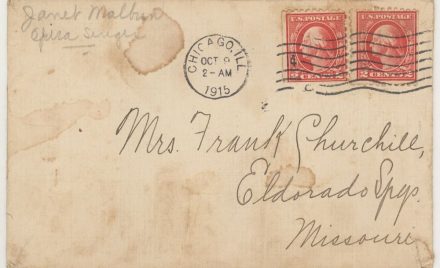 Janet Malbin
Opera Singer
CHICAGO, ILL.
OCT 9
2-AM
1915
U.S. POSTAGE
2 CENTS 2
U.S. POSTAGE
2 CENTS 2
Mrs. Frank Churchill,
Eldorado Spgs.
Missouri